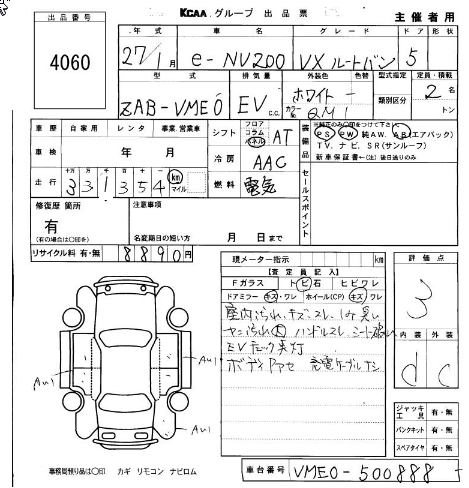 KCAA グループ 出品票 主催者用
出品番号 4060
年式 車名 グレード ドア 形状
27/1月 e-NV200 VXルートバン 5
型式 排気量 外装色 色替 型式指定 定員・積載
ZAB-VME0 EV C.C. ホワイト カラーNo. QM1 類別区分 2名 トン
車歴 自家用 レンタ 事業・営業車
シフト フロア コラム パネル AT
装備品 純正のみ○印をつけて下さい
PS PW 純AW. AB(エアバック)
TV. ナビ. SR(サンルーフ)
新車保証書←(注)後日送りのみ
車検 年 月
冷房 AAC
走行 十万 万 千 百 十 一 331354 km マイル
燃料 電気
セールスポイント
修復歴 箇所 有
(有の場合は○印を)
注意事項
名変期日の短い方 月 日まで
リサイクル料 有・無 8890円
現メーター指示 km
評価点 3
【査定員記入】
Fガラス トビ石 ヒビワレ
ドアミラー キズ・ワレ ホイール(CP) キズ・ワレ
室内汚れ、キズ、スレ、
ヤニ汚れ大 ハンドルスレ
EVチェック点灯
ボディ 充電ケーブルナシ
内装 外装
d c
AU1
AU1
AU1
ジャッキ 工具 有・無
パンクキット 有・無
スペアタイヤ 有・無
事務局預り品は○印 カギ リモコン ナビロム
車台番号 VME0-500888